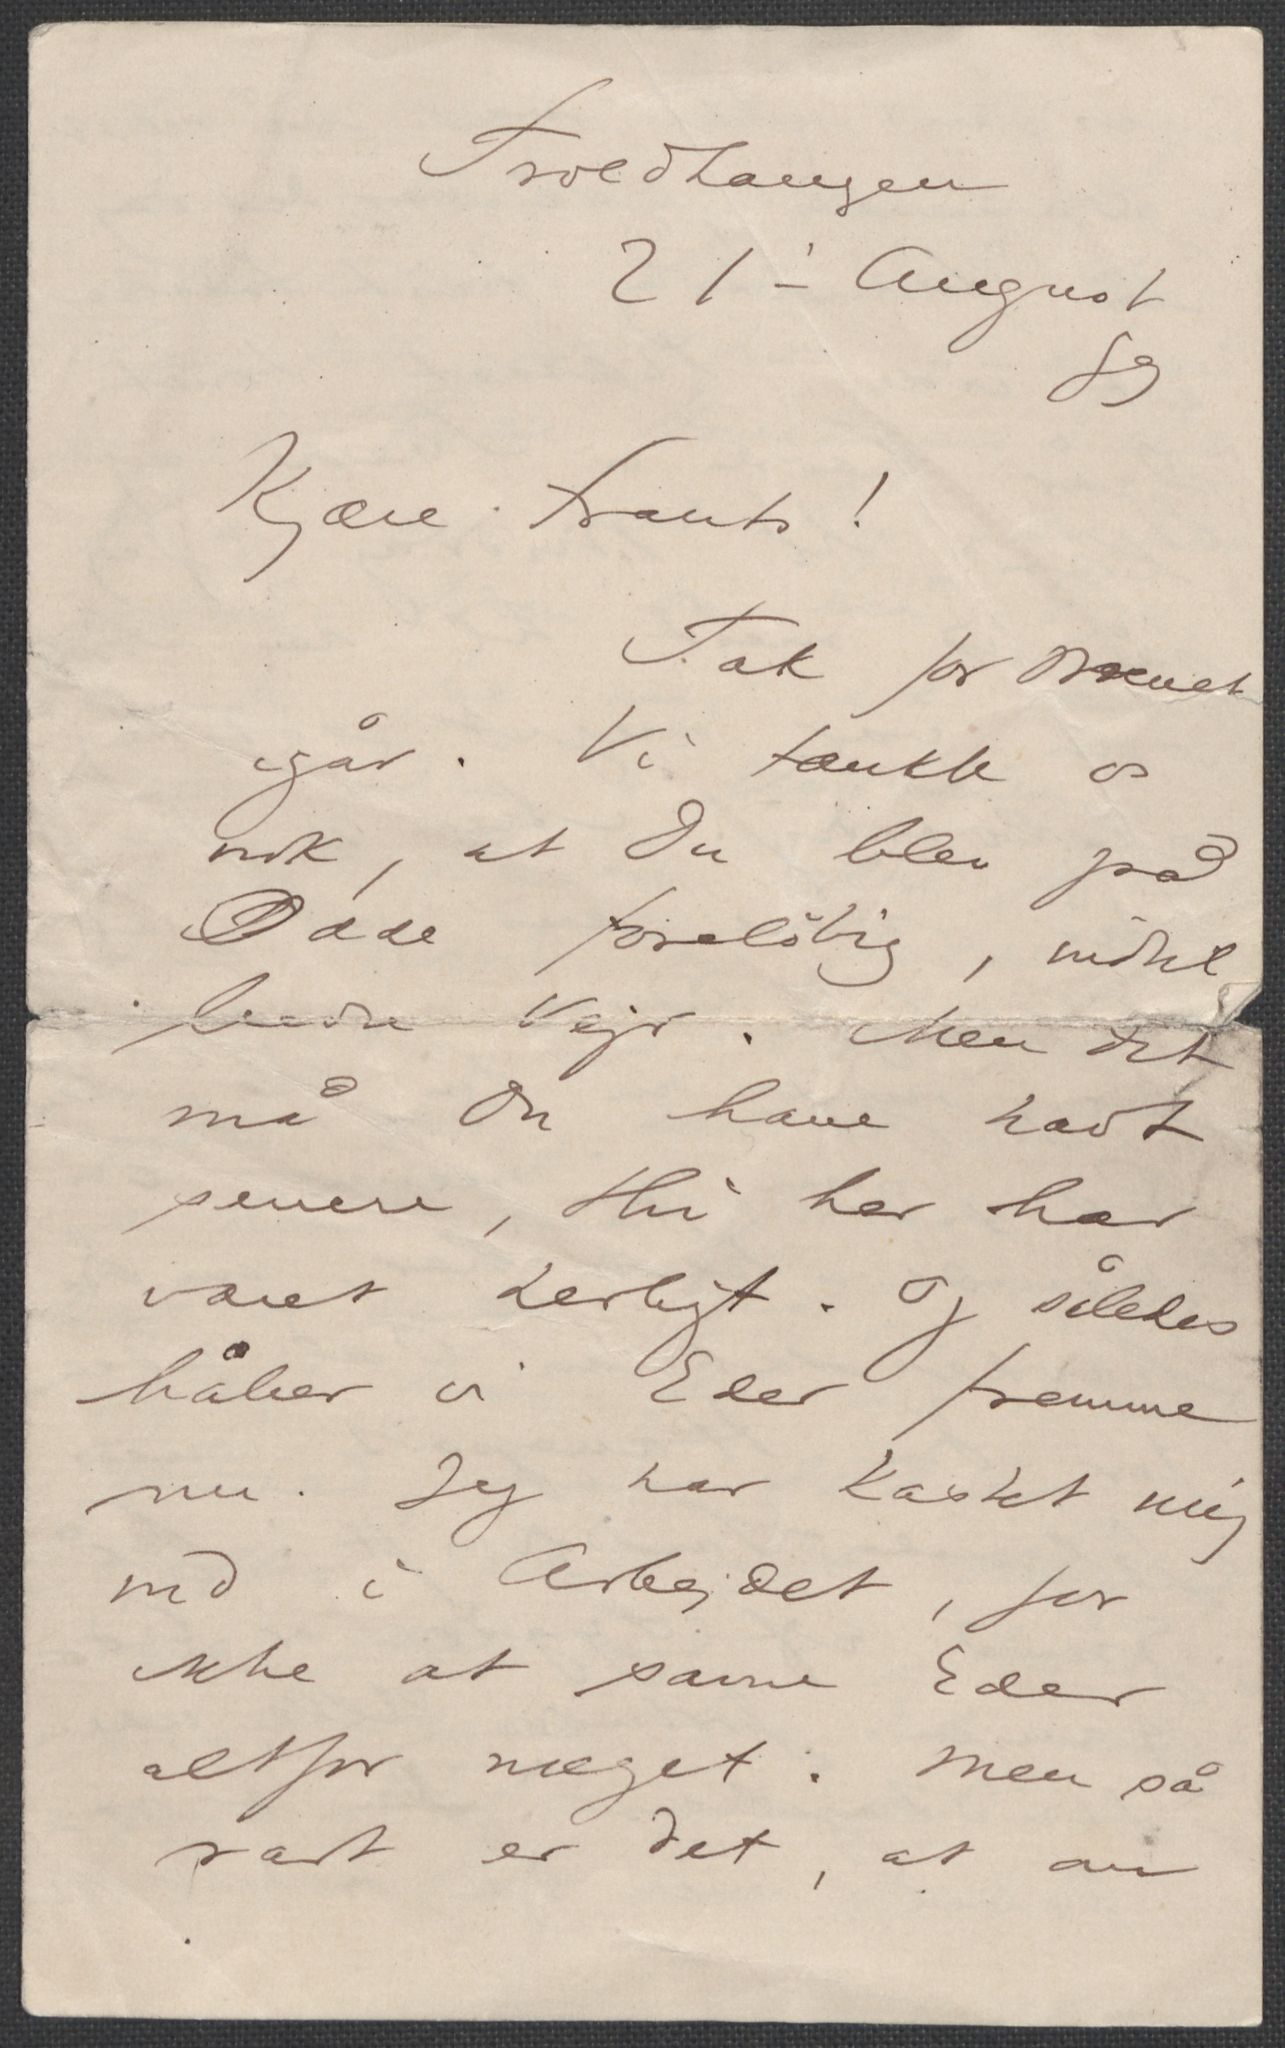 Troldhaugen
21' August
89
Kjære Frants!
Tak for Brevet
igår. Vi tænkte os
nok, at Du blev på
Odde foreløbig, indtil
bedre Vejr. Men det
må Du have havt
senere, thi her har
været herligt. Og således
håber vi Eder fremme
nu. Jeg har kastet mig
ind i Arbejdet, for
ikke at savne Eder
altfor meget. Men så
rart er det, at